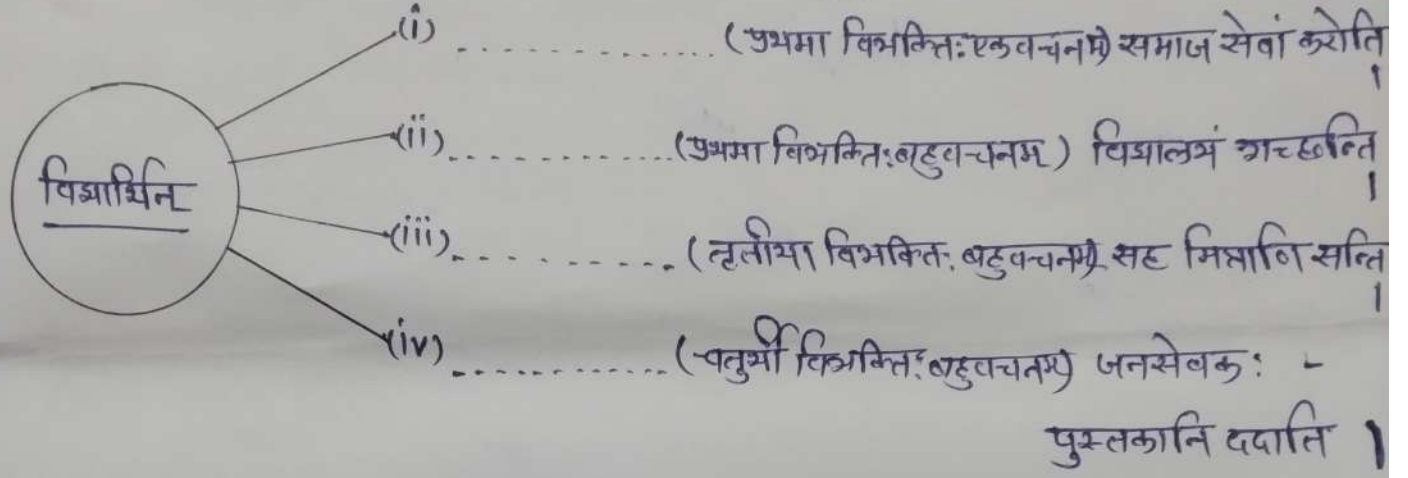 (i) ............... (प्रथमा विभक्तिः एकवचनम्) समाज सेवां करोति ।
(ii) ............... (प्रथमा विभक्तिः बहुवचनम्) विद्यालयं गच्छन्ति ।
विद्यार्थिन्
(iii) ............... (तृतीया विभक्तिः बहुवचनम्) सह मित्राणि सन्ति ।
(iv) ............... (चतुर्थी विभक्तिः बहुवचनम्) जनसेवकः -
पुस्तकानि ददाति ।